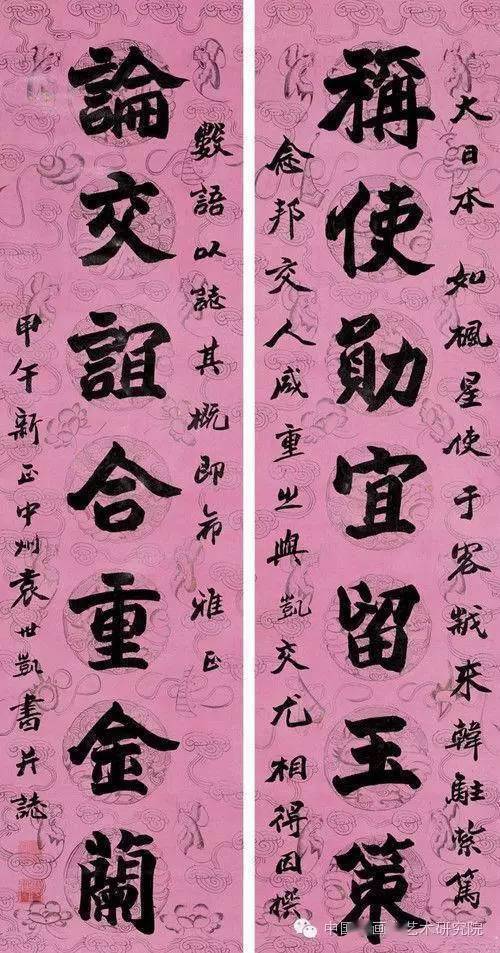 大日本 如楓星使于客歲來韓駐紮篤
稱使勛宜留玉策
念邦交人咸重之與凱交尤相得因撰
數語以誌其概即希雅正
論交誼合重金蘭
甲午新正中州袁世凱書并誌
中国 画 艺术研究院